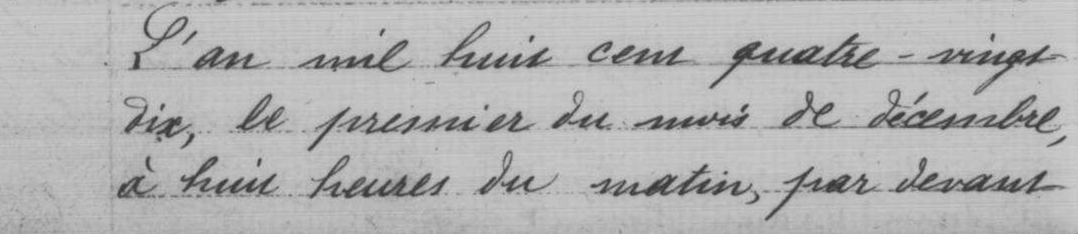 L'an mil huit cent quatre-vingt
dix, le premier du mois de décembre,
à huit heures du matin, par devant